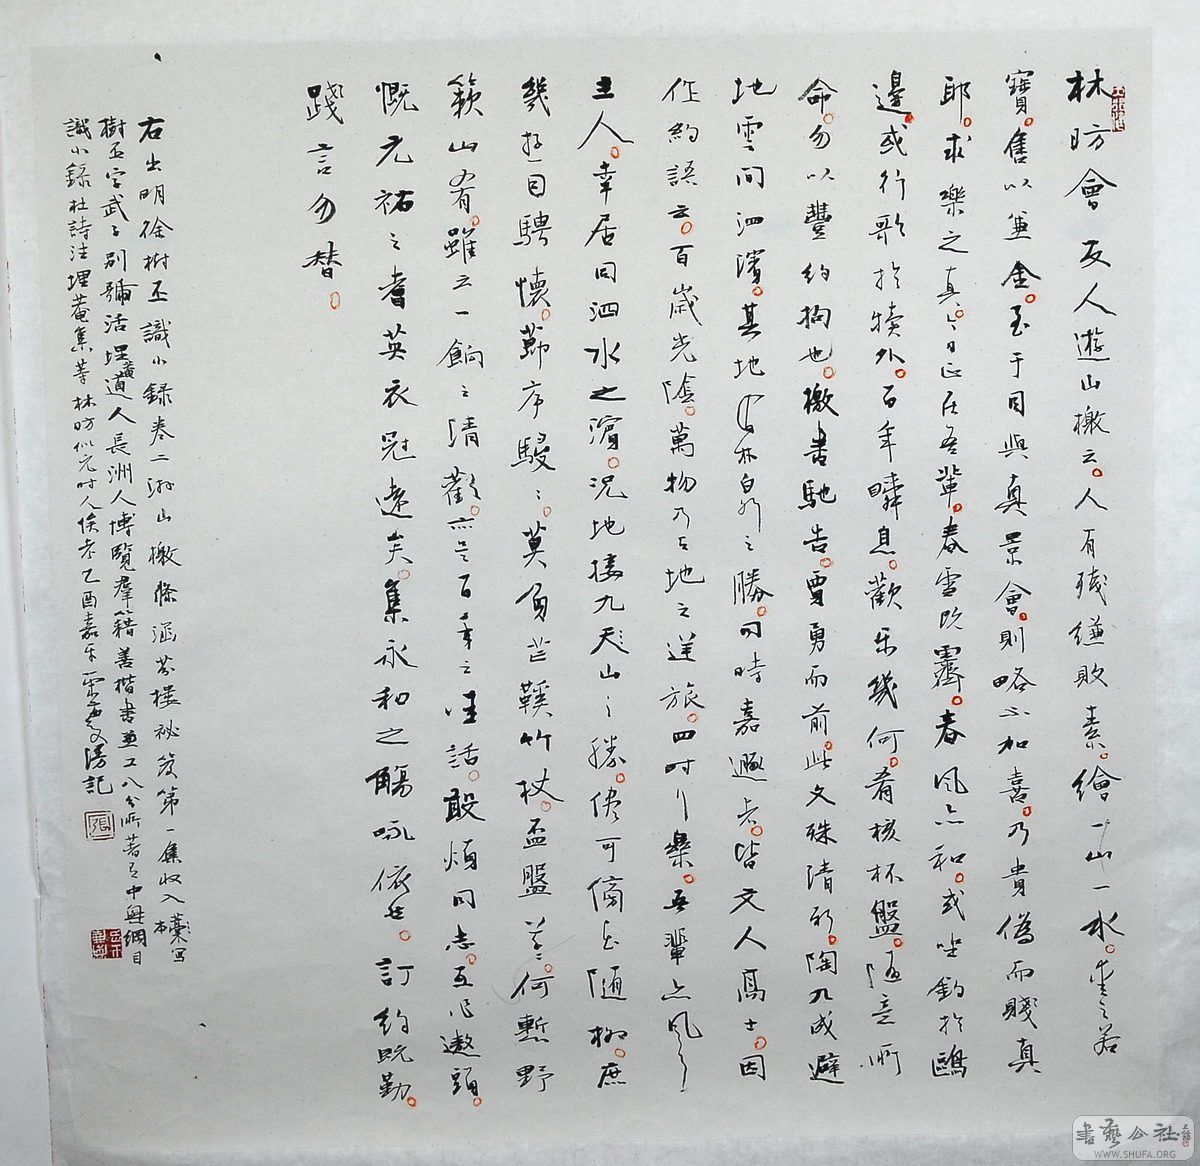 林昉會友人遊山檄云。人有殘縑敗素。繪一山一水。愛之若
寶。售以兼金。至于目與真景會。則略不加喜。乃貴偽而賤真
耶。求樂之真。今日正在吾輩。春雪既霽。春風亦和。或坐釣於鷗
邊。或行歌於犢外。百年瞬息。歡樂幾何。肴核杯盤。隨意所
命。勿以豐約拘也。檄書馳告。賈勇而前。此文殊清新。陶九成避
地雲間泗濱。其地有林泉之勝。同時嘉遯者。皆文人高士。因
作約語云。百歲光陰。萬物乃天地之逆旅。四時行樂。吾輩亦風月
主人。幸居同泗水之濱。況地接九龍山之勝。儘可傍花隨柳。庶
幾游目騁懷。節序駸駸。莫負芒鞋竹杖。盃盤草草。何慙野
蔌山肴。雖云一餉之清歡。亦是百年之佳話。敢煩同志。互作遨頭。
慨元祐之耆英衣冠遠矣。集永和之觴詠依然。訂約既勤。
踐言勿替。
右出明徐樹丕識小錄卷二游山檄條涵芬樓祕笈第一集收入藁寫本
樹丕字武子別號活埋道人長洲人博覽羣籍善楷書並工八分所著有中興綱目
識小錄杜詩注埋菴集等林昉似元時人俟考乙酉嘉平 記
書藝公社
WWW.SHUFA.ORG